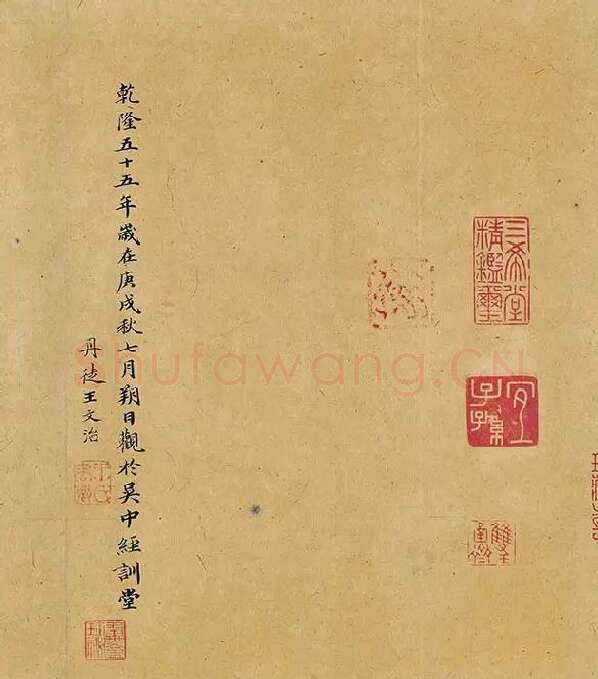 三希堂精鑑璽
宜子孫
乾隆五十五年歲在庚戌秋七月朔日觀於吳中經訓堂
丹徒王文治
Shufawang.CN